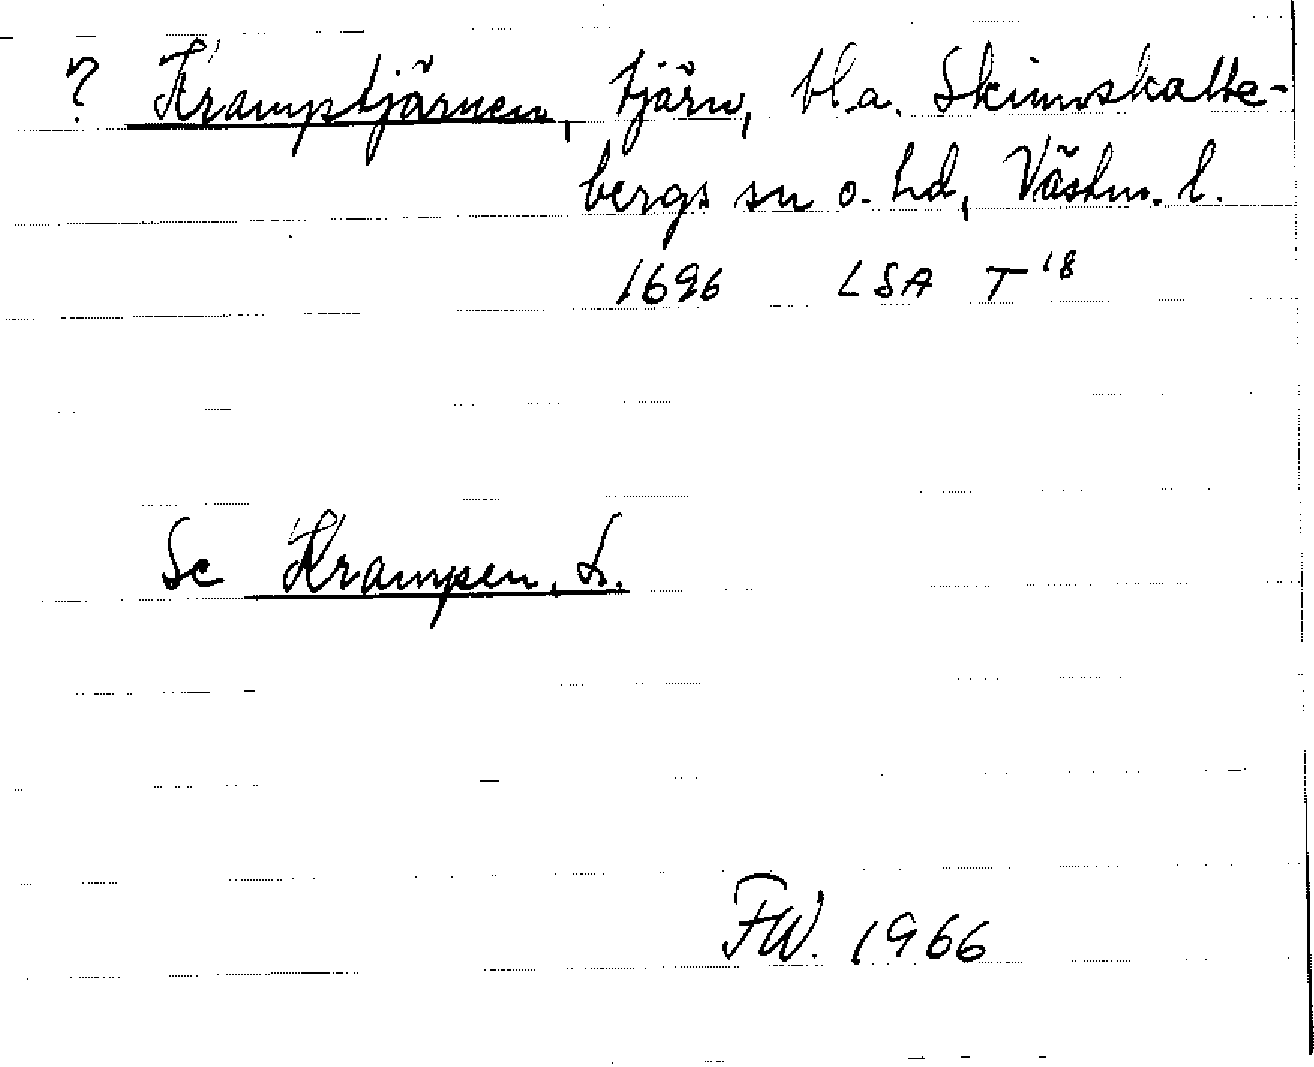 ? Kramptjärnen, tjärn, bl.a. Skinnskatte-
bergs sn o. hd, Västm. l.
1696 LSA T 18
Se Krampen, L.
FW. 1966